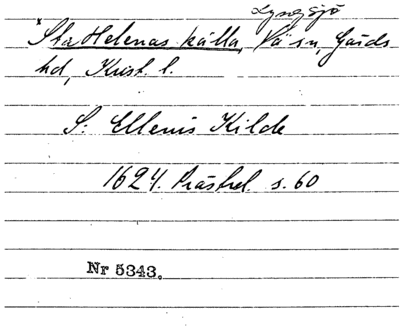 Lyngsjö
×Sta Helenas källa, Vä sn, Gärds
hd, Krist. l.
S: Ellenis Kilde
1624. Prästrel. s. 60
Nr 5343.